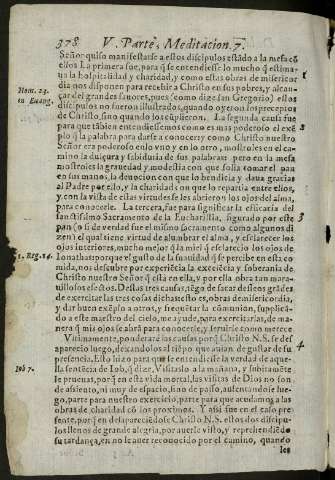 378 V. Parte, Meditacion. 7.
Señor quiso manifestarse a estos discipulos estãdo a la mesa cõ
ellos. La primera fue, para q̃ se entendiesse lo mucho q̃ estima-
ua la hospitalidad y charidad, y como estas obras de misericor
dia nos disponen para recebir a Christo en sus pobres, y alcan-
Hom. 23.
in Euang.
çar del grandes fauores, pues (como dize san Gregorio) estos
discipulos no fueron illustrados, quando oyeron los preceptos
de Christo, sino quando los cũplieron. La segunda causa fue
para que tãbien entendiessemos como es mas poderoso el exẽ-
plo q̃ la palabra para darse a conocer: y como Christo nuestro
Señor era poderoso en lo vno y en lo otro, mostroles en el ca-
mino la dulçura y sabiduria de sus palabras: pero en la mesa
mostroles la grauedad y modestia con que solia tomar el pan
en sus manos, la deuocion con que lo bendezia y daua gracias
al Padre por ello, y la charidad con que lo repartia entre ellos,
y con la vista de estas virtudes se les abrieron los ojos del alma,
para conocerle. La tercera, fue para significar la eficacia del
santissimo Sacramento de la Eucharistia, figurado por este
3
pan (o si de verdad fue el mismo sacramento como algunos di
zen) el qual tiene virtud de alumbrar el alma, y esclarecer los
ojos interiores, mucho mejor q̃ la miel q̃ esclarecio los ojos de
1. Reg. 14.
Ionathas: porque el gusto de la suauidad q̃ se percibe en esta co
mida, nos descubre por experiẽcia la excelẽcia y soberania de
Christo nuestro Señor q̃ està en ella, y por ella obra tan mara-
uillosos efectos. Destas tres causas, tẽgo de sacar desseos grãdes
de exercitar las tres cosas dichas: esto es, obras de misericordia,
y dar buen exẽplo a otros, y frequẽtar la comunion, suplicãdo
a este maestro del cielo, me ayude, para exercitarlas, de mane-
ra q̃ mis ojos se abrã para conocerle, y seruirle como merece.
Vltimamente, ponderarè las causas porq̃ Christo N. S. se des
4
aparecio luego, dexando los al tiẽpo que auian de gustar de su
presencia. Esto hizo para que se entendiesse la verdad de aque-
Iob 7.
lla sentẽcia de Iob, q̃ dize, Visitaslo a la mañana, y subitamẽte
le prueuas, porq̃ en esta vida mortal, las visitas de Dios no son
de assiento, ni muy de espacio, sino de passo, ausentandose lue-
go, parte para nuestro exercicio, parte para que acudamos a las
obras de charidad cõ los proximos. Y assi fue en el caso pre
sente, porq̃ en desapareciẽdose Christo N. S. estos dos discipu-
los llenos de grande alegria, por auerle visto, y reprehendiẽdo
su tardança, en no le auer reconocido por el camino, quando
les